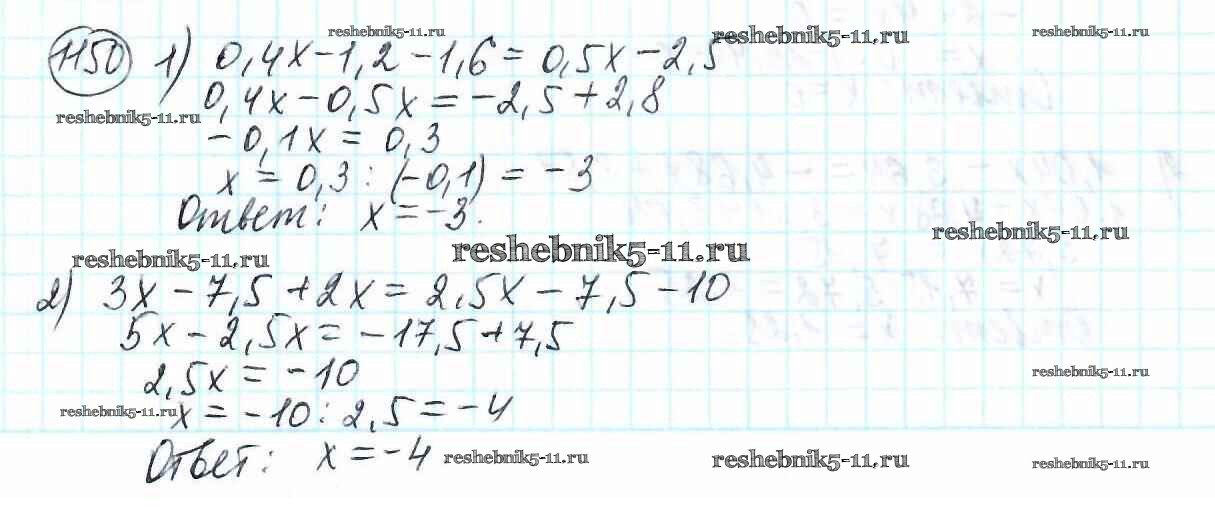 reshebnik5-11.ru
1150 1) 0,4x-1,2-1,6=0,5x-2,5 reshebnik5-11.ru
0,4x-0,5x=-2,5+2,8
reshebnik5-11.ru
-0,1x=0,3
x=0,3:(-0,1)=-3
Ответ: x=-3.
reshebnik5-11.ru
reshebnik5-11.ru reshebnik5-11.ru
2) 3x-7,5+2x=2,5x-7,5-10
5x-2,5x=-17,5+7,5
2,5x=-10 reshebnik5-11.ru
reshebnik5-11.ru x=-10:2,5=-4
Ответ: x=-4 reshebnik5-11.ru reshebnik5-11.ru reshebnik5-11.ru